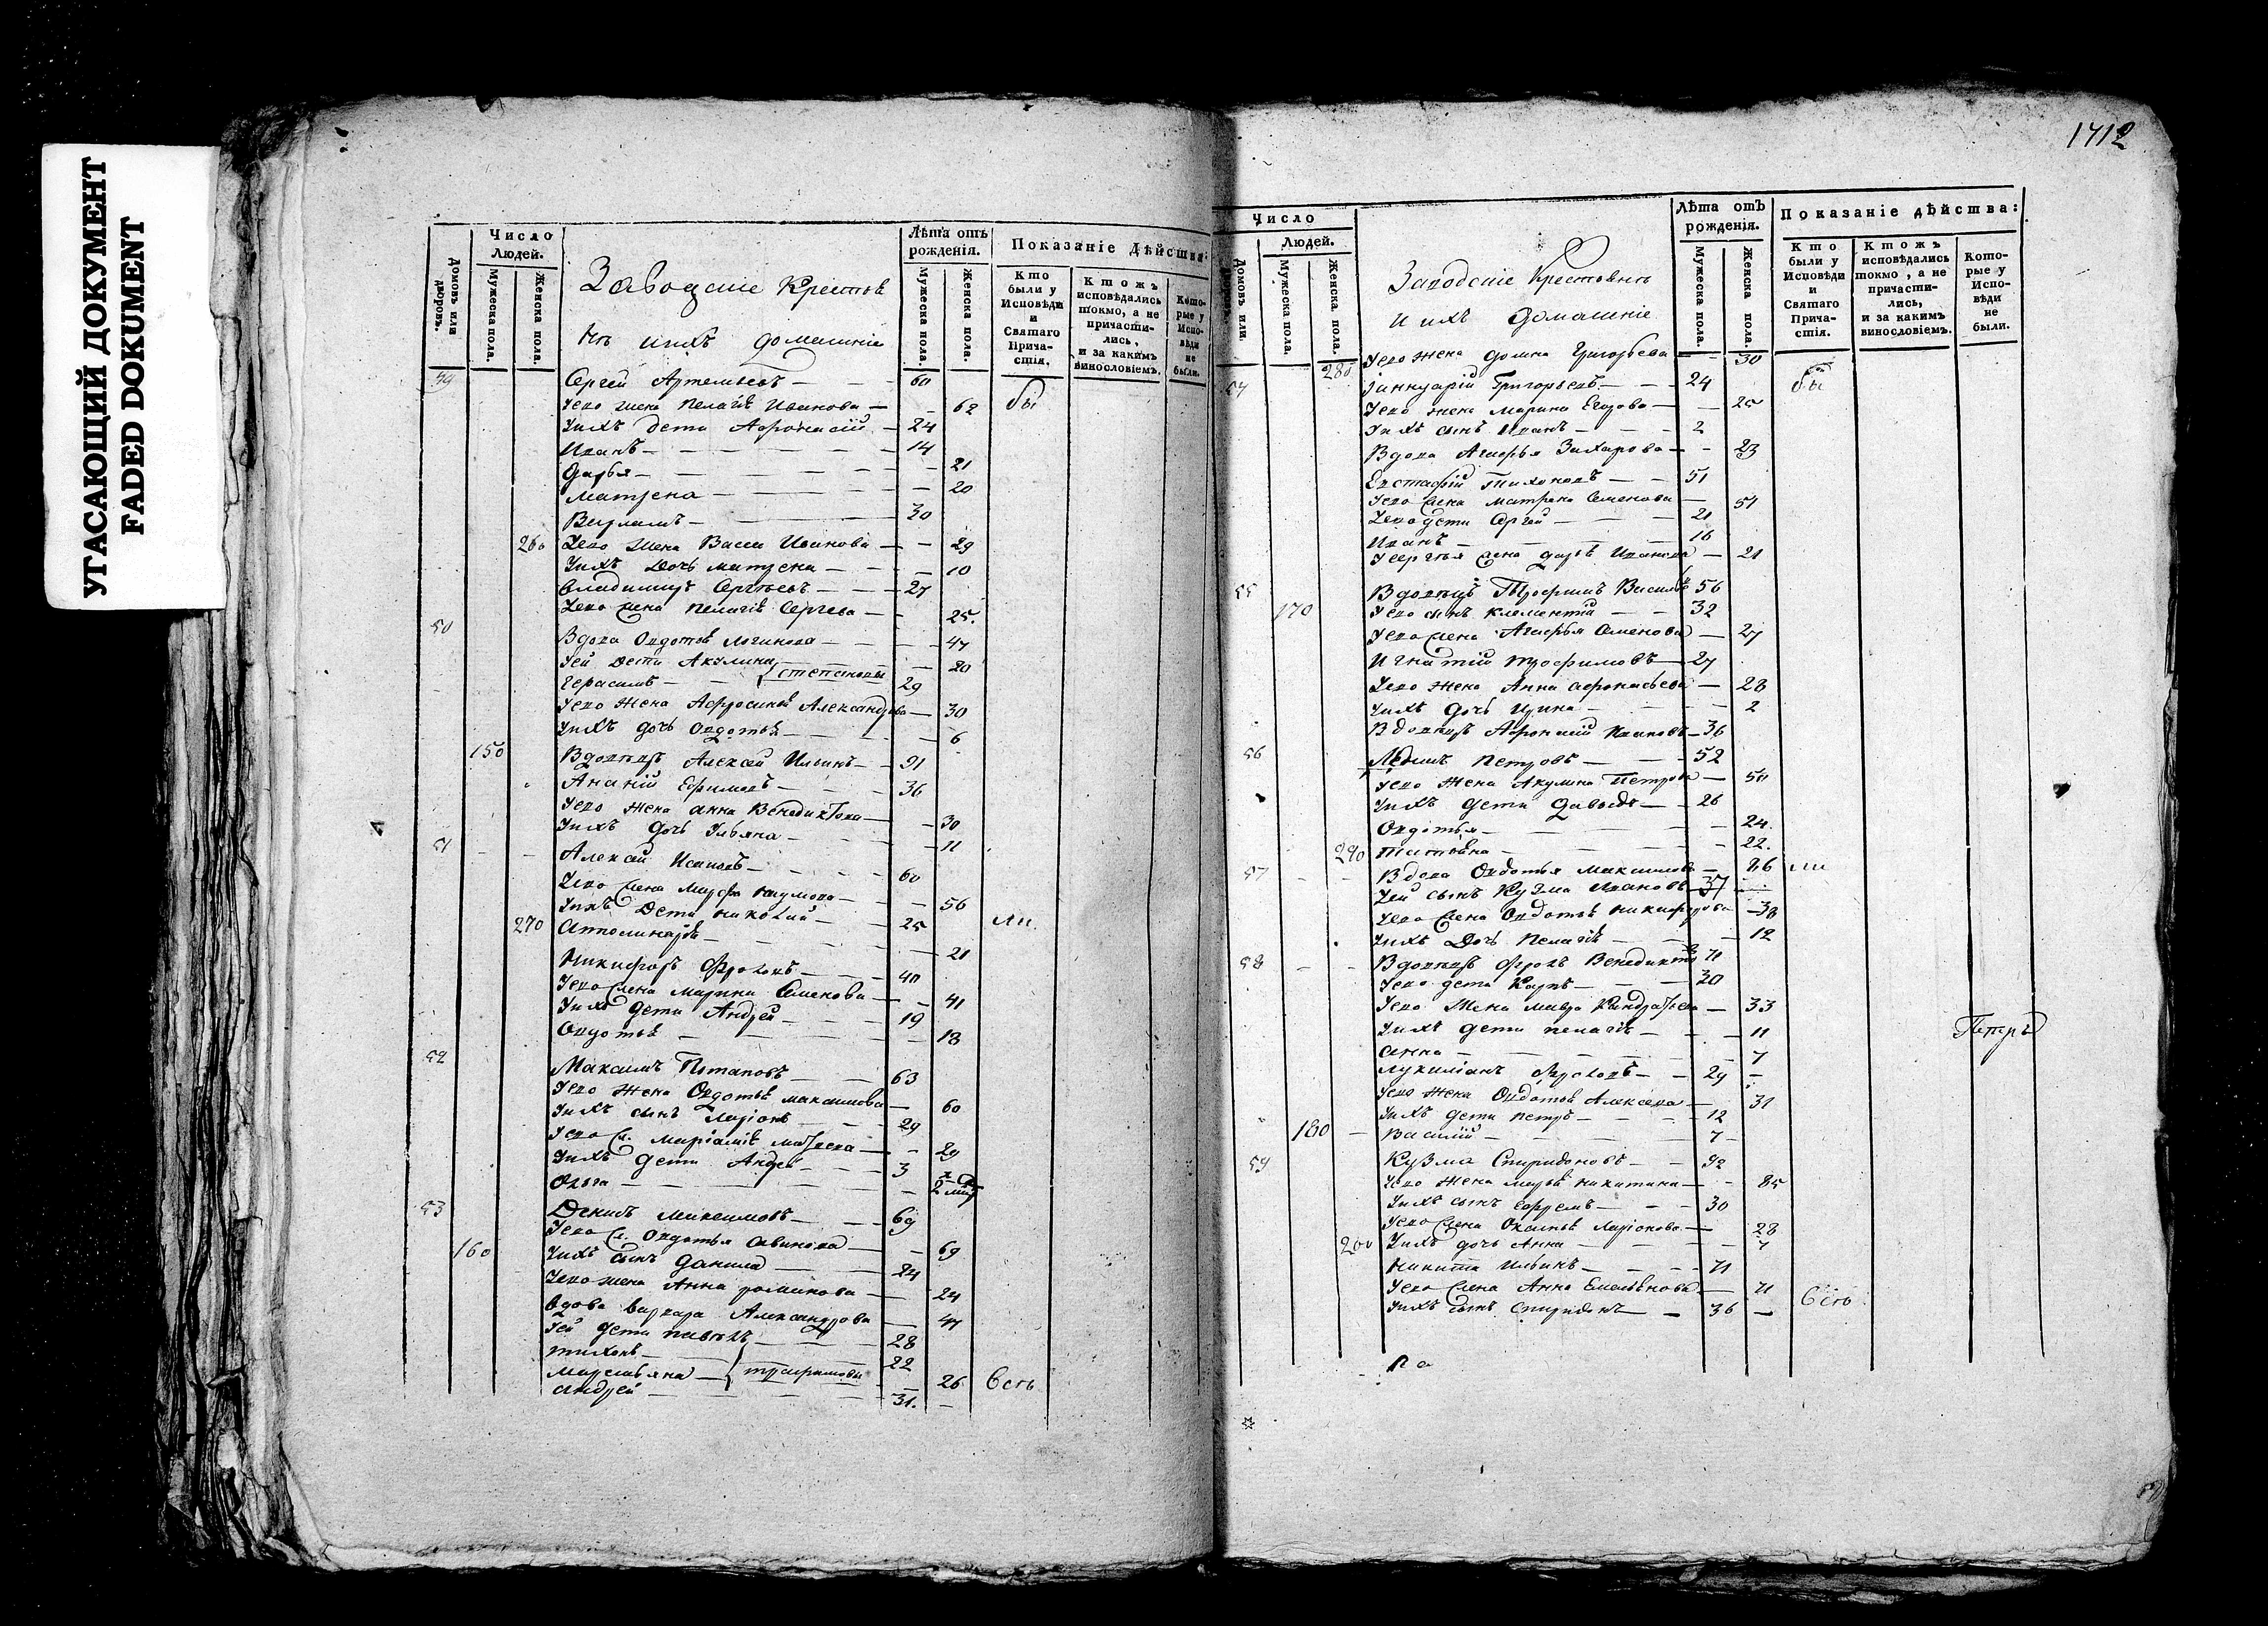 УГАСАЮЩИЙ ДОКУМЕНТ
FADED DOKUMENT
Число Людей.
Лѣта отъ рожденія.
Показаніе дѣйства:
Домовъ или дворовъ.
Мужеска пола.
Женска пола.
Заводскіе Крестья
не ихъ домашніе
Мужеска пола.
Женска пола.
Кто были у Исповѣди и Святаго Причастія.
Ктожъ исповѣдались токмо, а не причастились, и за какимъ винословіемъ.
Которые у Исповѣди не были.
Сергей Артемьевъ — 60
Его жена Пелагія Иванова — 62 бы
Ихъ дети Афонасій — 24
Иванъ — 14
Дарья — 21
Матрена — 20
Варламъ — 30
260 Его жена Васса Иванова — 29
Ихъ дочь Матрена — 10
Владимиръ Сергѣевъ — 27
Его жена Пелагія Сергеева — 25.
50 Вдова Овдотья Логинова — 47
Ей дети Акулина — 20
Герасимъ — Степановы 29
Его жена Афросинья Александрова — 30
Ихъ дочь Овдотья — 6
150 Вдовецъ Алексей Ильинъ — 91
Ананій Ефимовъ — 36
Его жена Анна Венедиктова — 30
Ихъ дочь Ульяна — 11
51 Алексей Исаковъ — 60
Его жена Марфа Наумова — 56
Ихъ дети Николай — 25 ли
270 Апполинарія — 21
Никифоръ Фроловъ — 40
Его жена Марина Семенова — 41
Ихъ дети Андрей — 19
Овдотья — 18
52 Максимъ Потаповъ — 63
Его жена Овдотья Максимова — 60
Ихъ сынъ Ларіонъ — 29
Его ж. Маріамія Матвеева — 29
Ихъ дети Андрей — 3
Ольга — 2
53 Денисъ Максимовъ — 69
Его ж. Овдотья Савинова — 69
160 Ихъ сынъ Данила — 24
Его жена Анна Романова — 24
Вдова Варвара Александрова — 47
Ей дети Павелъ — 28
Тихонъ — 22
Маремьяна — Трофимовы 26 всѣ
Андрей — 31.
1712
Число Людей.
Лѣта отъ рожденія.
Показаніе дѣйства:
Домовъ или
Мужеска пола.
Женска пола.
Заводскіе Крестьяне
и ихъ домашніе
Мужеска пола.
Женска пола.
Кто были у Исповѣди и Святаго Причастія.
Ктожъ исповѣдались токмо, а не причастились, и за какимъ винословіемъ.
Которые у Исповѣди не были.
280 Его жена Домна Григорьева — 30
54 Іаннуарій Григорьевъ — 24 бы
Его жена Марина Егорова — 25
Ихъ сынъ Иванъ — 2
Вдова Агафья Захарова — 23
Евстафій Тихоновъ — 51
Его жена Матрена Семенова — 51
Его дети Сергей — 21
Иванъ — 16
Сергѣя жена Дарья Иванова — 21
55 Вдовецъ Трофимъ Васильевъ 56
170 Его сынъ Клементій — 32
Его жена Агафья Семенова — 27
Игнатій Трофимовъ — 27
Его жена Анна Афонасьева — 28
Ихъ дочь Ирина — 2
Вдовецъ Афонасій Ивановъ — 36
56 Петровъ — 52
Его жена Акулина Петрова — 50
Ихъ дети Давыдъ — 26
Овдотья — 24.
290 Татьяна — 22.
57 Вдова Овдотья Максимова — 86 ли
Ей сынъ Кузма Ивановъ — 37
Его жена Овдотья Никифорова — 38
Ихъ дочь Пелагія — 12
58 Вдовецъ Фролъ Венедиктовъ 71
Его дети Карпъ — 30
Его жена Мавра Кандратьева — 33
Ихъ дети Пелагія — 11
Анна — 7
Лукиліанъ Фроловъ — 29
Его жена Овдотья Алексеева — 31
Ихъ дети Петръ — 12
180 Василій — 7
59 Кузма Спиридоновъ — 92
Его жена Марья Никитина — 85
Ихъ сынъ Ефремъ — 30
Его жена Оксинья Ларіонова — 28
200 Ихъ дочь Анна — 7
Никита Ильинъ — 71
Его жена Анна Емельянова — 71
Ихъ сынъ Спиридонъ — 36 — всѣ